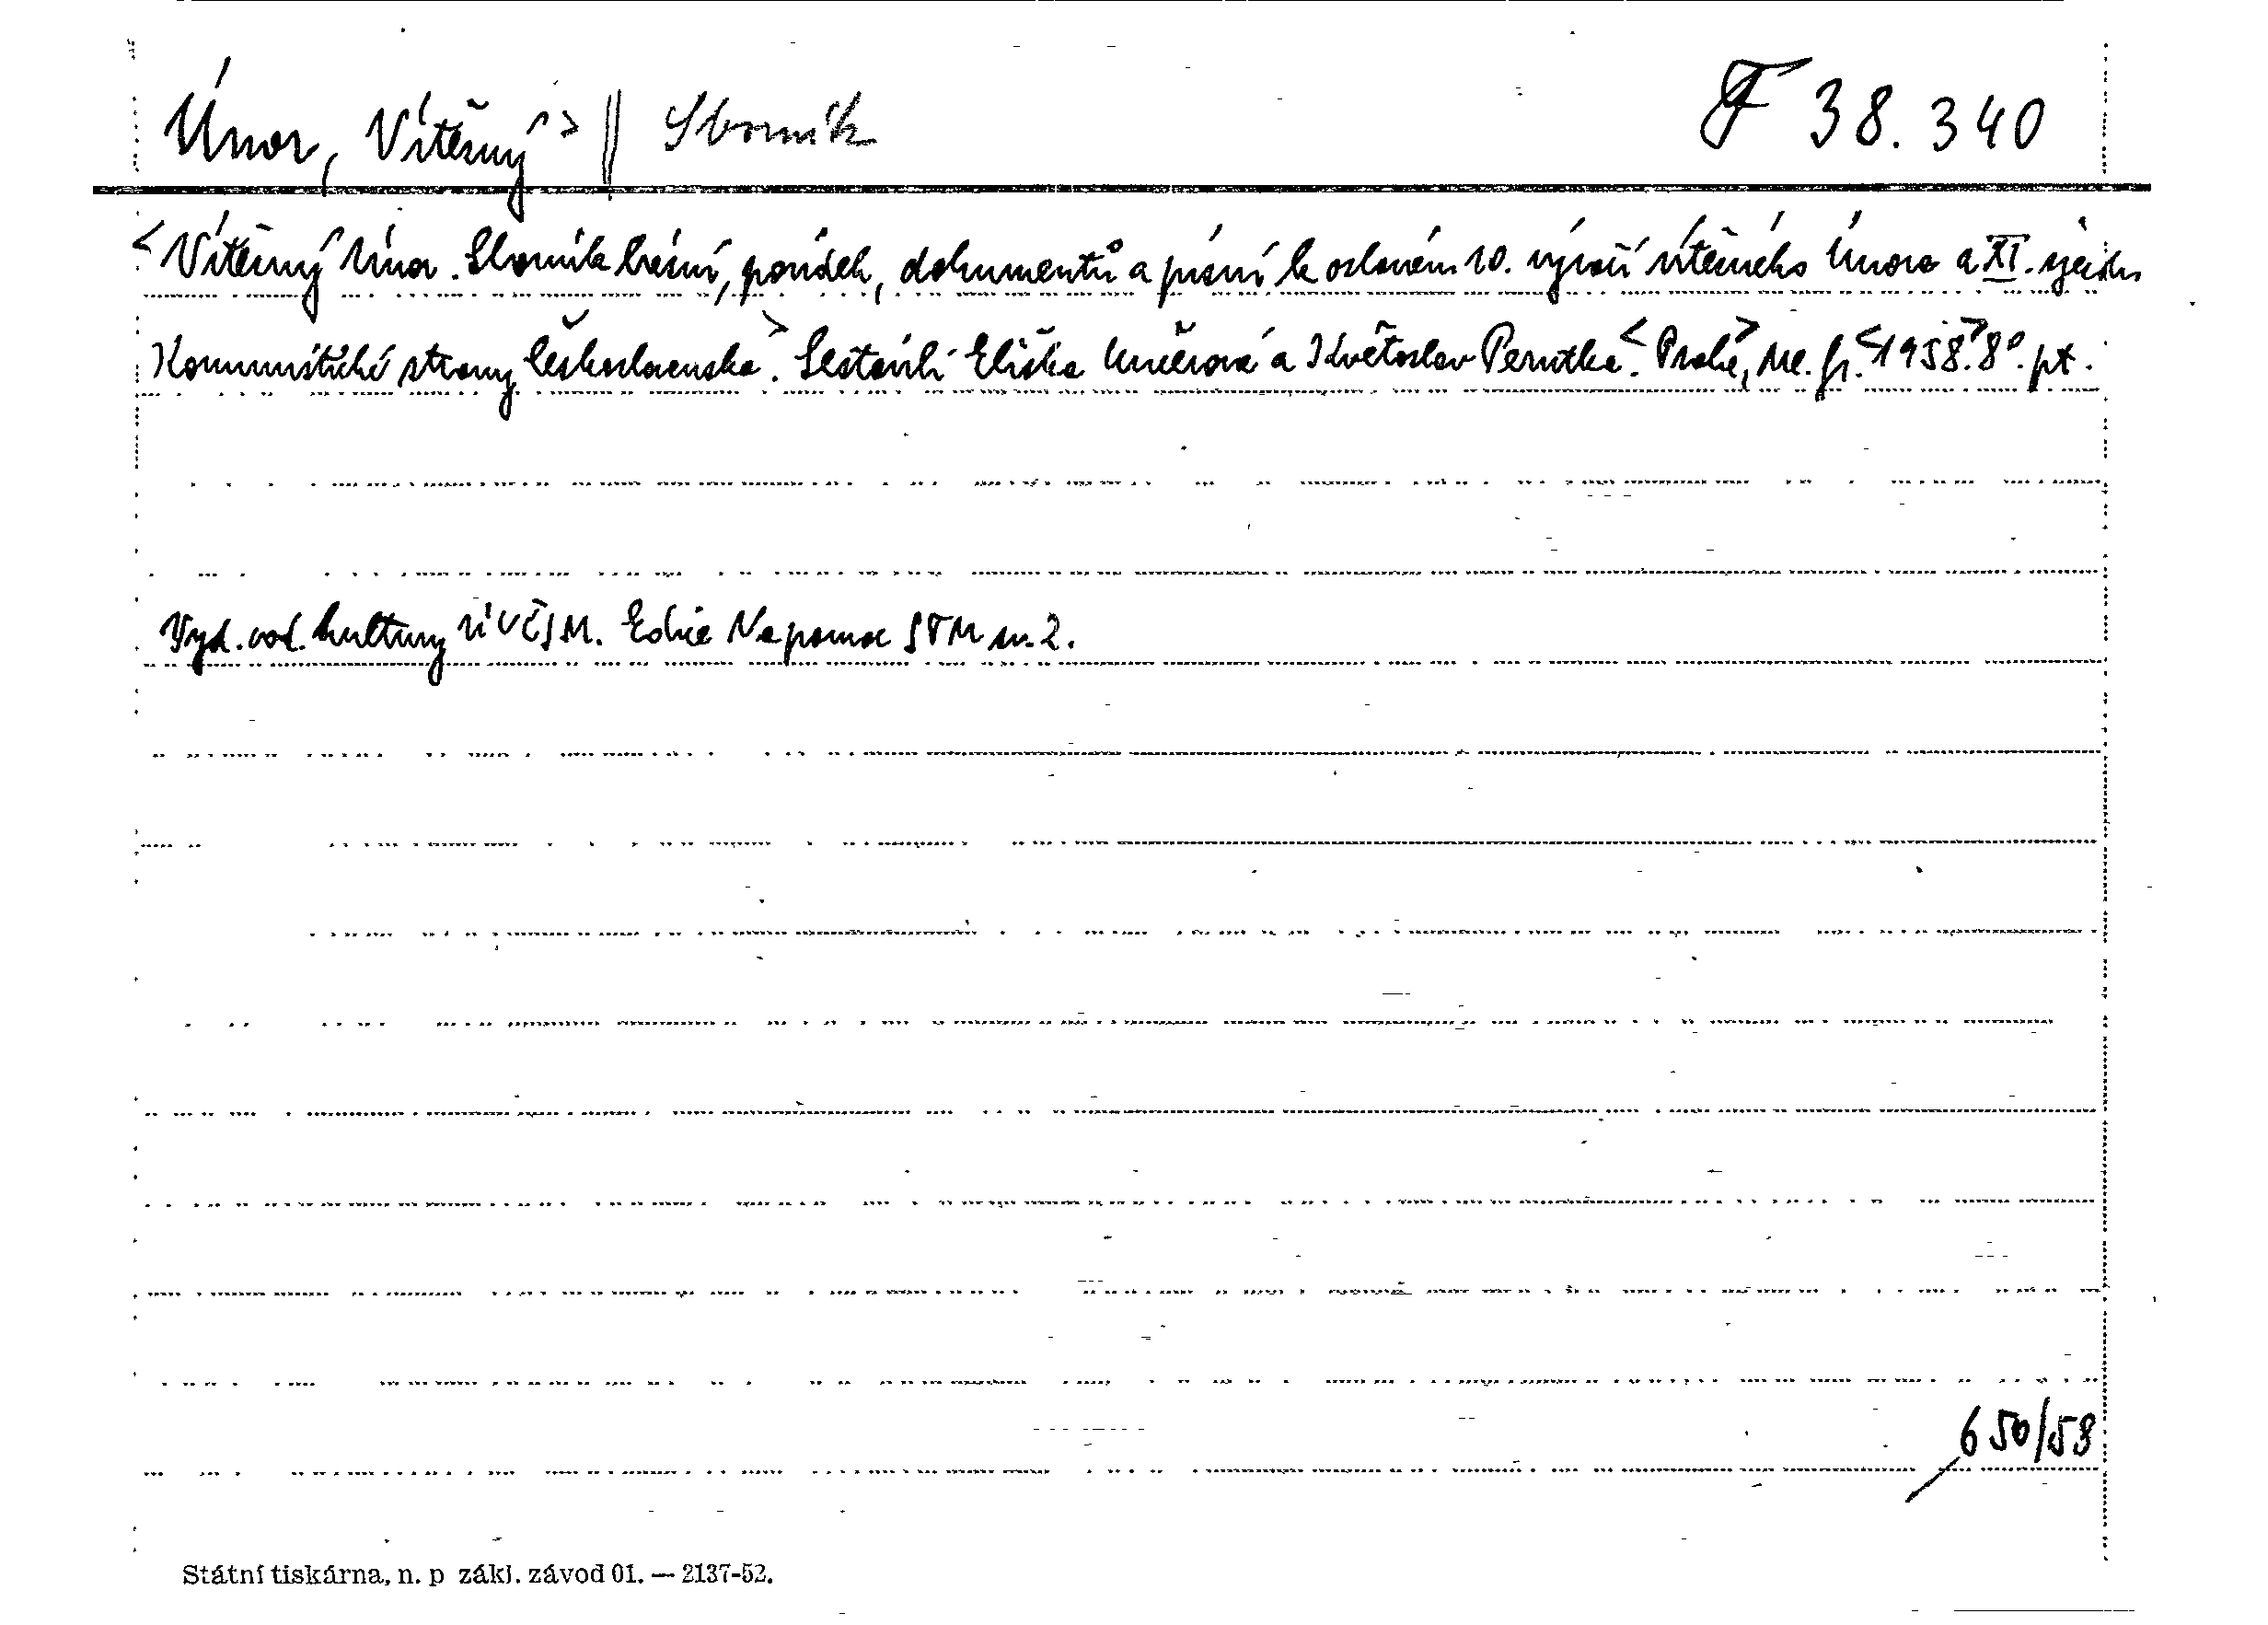 Únor, Vítězný > || Sborník F 38.340
< Vítězný Únor. Sborník básní, povídek, dokumentů a písní k oslavám 10. výročí vítězného Února a XI. sjezdu
Komunistické strany Československa >. Sestavili Eliška a Květoslav Perutka. < Praha >, < 1958. > 8°. pt.
Vyd. odd. kultury ÚV ČSM. Edice Na pomoc STM sv. 2.
650/58
Státní tiskárna, n. p zákl. závod 01. — 2137-52.